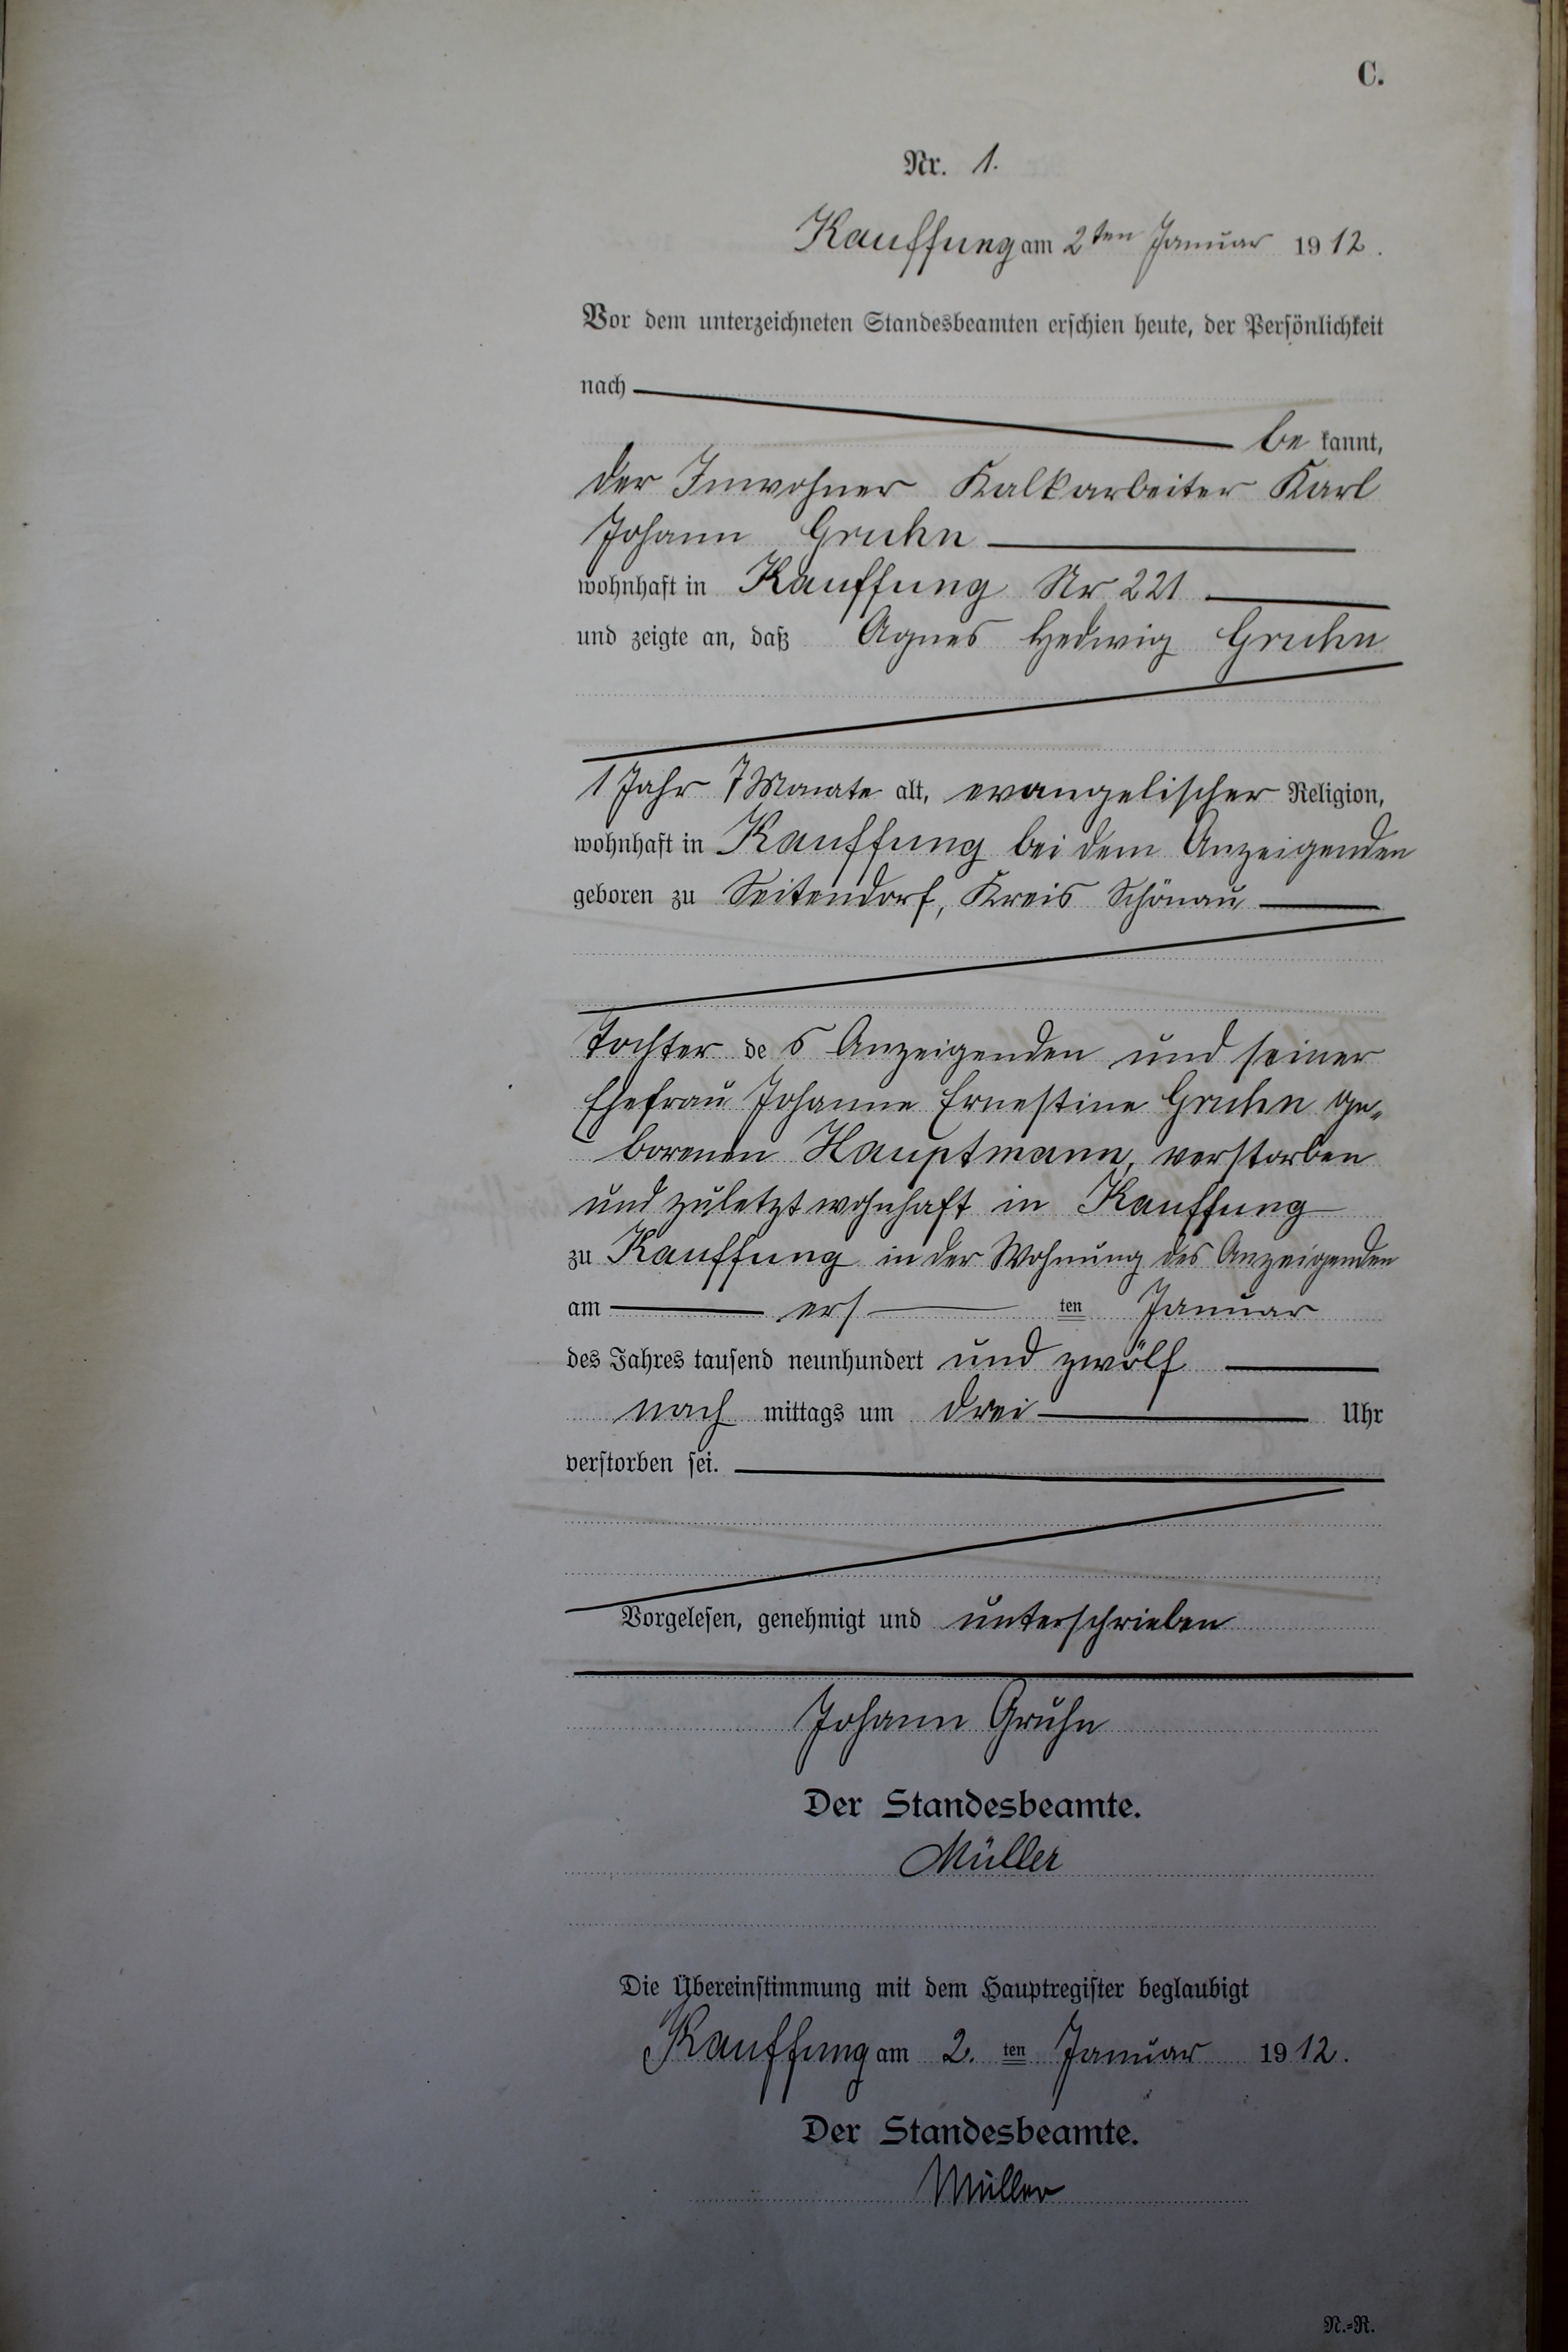 C.
Nr. 1.
Kauffung am 2ten Januar 1912.
Vor dem unterzeichneten Standesbeamten erschien heute, der Persönlichkeit
nach
be kannt,
der Inwohner Kalkarbeiter Karl
Johann Gruhn
wohnhaft in Kauffung Nr 221
und zeigte an, daß Agnes Hedwig Gruhn
1 Jahr 7 Monate alt, evangelischer Religion,
wohnhaft in Kauffung bei dem Anzeigenden
geboren zu Seitendorf, Kreis Schönau
Tochter des Anzeigenden und seiner
Ehefrau Johanne Ernestine Gruhn ge-
borenen Hauptmann, verstorben
und zuletzt wohnhaft in Kauffung
zu Kauffung in der Wohnung des Anzeigenden
am ers ten Januar
des Jahres tausend neunhundert und zwölf
nach mittags um drei Uhr
verstorben sei.
Vorgelesen, genehmigt und unterschrieben
Johann Gruhn
Der Standesbeamte.
Müller
Die Übereinstimmung mit dem Hauptregister beglaubigt
Kauffung am 2. ten Januar 1912.
Der Standesbeamte.
Müller
N.-R.